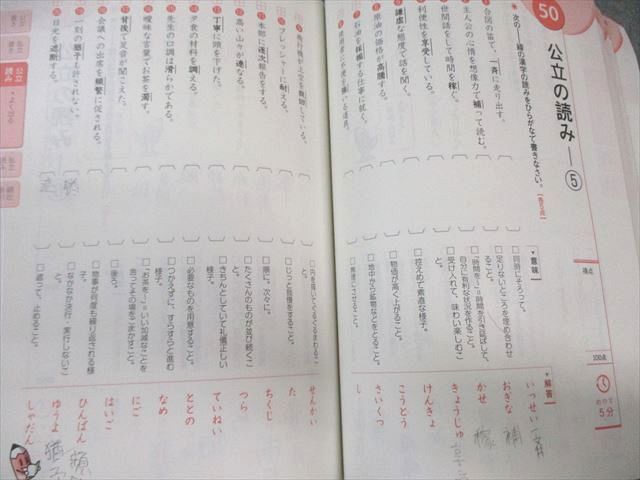 50
公立の読み—⑤
得点
100点
めやす
5分
次の——線の漢字の読みをひらがなで書きなさい。
合図の笛で、一斉に走り出す。
主人公の心情を想像力で補って読む。
世間話をして時間を稼ぐ。
利便性を享受している。
謙虚な態度で話を聞く。
原油の価格が高騰する。
飛行機が上空を旋回している。
プレッシャーに耐える。
本部に逐次報告をする。
高い山々が連なる。
丁寧に頭を下げた。
夕食の材料を調える。
先生の口調は滑らかである。
曖昧な言葉でお茶を濁す。
背後で足音が聞こえた。
会議への出席を頻繁に促される。
一刻の猶予も許されない。
日光を遮断する。
▼意味
□同時にそろって。
□足りないところを埋め合わせること。
□「時間を〜」=時間を引き延ばして、自分に有利な状況を作ること。
□受け入れて、味わい楽しむこと。
□控えめで素直な様子。
□物価が高く上がること。
□地中から鉱物などをとること。
□円を描いてくるくるまわること。
□じっと我慢をすること。
□順に。次々に。
□たくさんのものが並び続くこと。
□きちんとしていて礼儀正しい様子。
□必要なものを用意すること。
□つかえずに、すらすらと進む様子。
□「お茶を〜」=いい加減なことを言ってその場をごまかすこと。
□後ろ。
□物事が何度も繰り返される様子。
□なかなか決行・実行しないこと。
□遮って、止めること。
▼解答
いっせい
おぎな
補
かせ
稼
きょうじゅ
けんきょ
こうとう
さいくつ
し
せんかい
た
ちくじ
つら
ていねい
ととの
なめ
にご
はいご
ひんぱん
ゆうよ
猶予
しゃだん